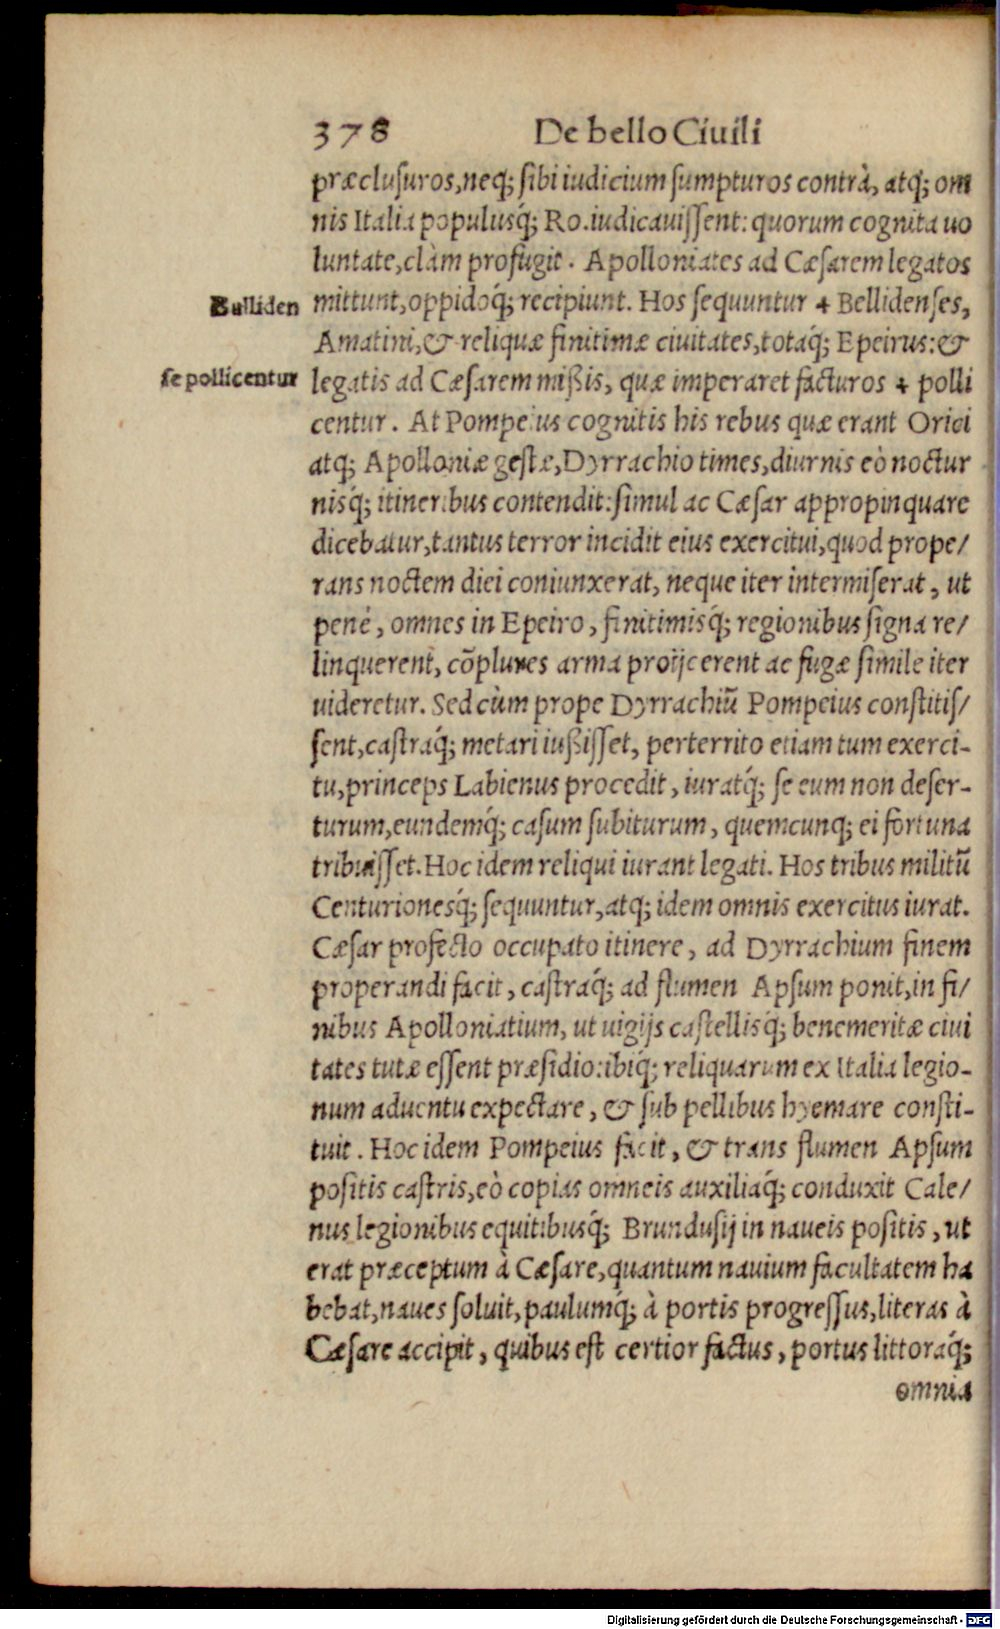 378 De bello Ciuili
præclusuros,neq; sibi iudicium sumpturos contrà, atq; om
nis Italia populusq́; Ro. iudicauissent: quorum cognita uo
luntate,clàm profugit. Apolloniates ad Cæsarem legatos
Bulliden
mittunt,oppidoq́; recipiunt. Hos sequuntur + Bellidenses,
Amatini,& reliquæ finitimæ ciuitates,totaq́; Epeirus: &
se pollicentur
legatis ad Cæsarem mißis, quæ imperaret facturos + polli
centur. At Pompeius cognitis his rebus quæ erant Orici
atq; Apolloniæ gestæ,Dyrrachio times,diurnis eò noctur
nisq́; itineribus contendit: simul ac Cæsar appropinquare
dicebatur,tantus terror incidit eius exercitui,quod prope/
rans noctem diei coniunxerat, neque iter intermiserat, ut
penè, omnes in Epeiro, finitimisq́; regionibus signa re/
linquerent, cōplures arma proijcerent ac fugæ simile iter
uideretur. Sed cùm prope Dyrrachiū Pompeius constitis/
sent,castraq́; metari iußisset, perterrito etiam tum exerci-
tu,princeps Labienus procedit, iuratq́; se eum non deser-
turum,eundemq́; casum subiturum, quemcunq; ei fortuna
tribuisset. Hoc idem reliqui iurant legati. Hos tribus militū
Centurionesq́; sequuntur,atq; idem omnis exercitus iurat.
Cæsar profecto occupato itinere, ad Dyrrachium finem
properandi facit, castraq́; ad flumen Apsum ponit,in fi/
nibus Apolloniatium, ut uigijs castellisq́; benemeritæ ciui
tates tutæ essent præsidio: ibiq́; reliquarum ex Italia legio-
num aduentu expectare, & sub pellibus hyemare consti-
tuit. Hoc idem Pompeius facit, & trans flumen Apsum
positis castris,eò copias omneis auxiliaq́; conduxit Cale/
nus legionibus equitibusq́; Brundusij in naueis positis, ut
erat præceptum à Cæsare,quantum nauium facultatem ha
bebat,naues soluit,paulumq́; à portis progressus,literas à
Cæsare accipit, quibus est certior factus, portus littoraq́;
omnia
Digitalisierung gefördert durch die Deutsche Forschungsgemeinschaft - DFG